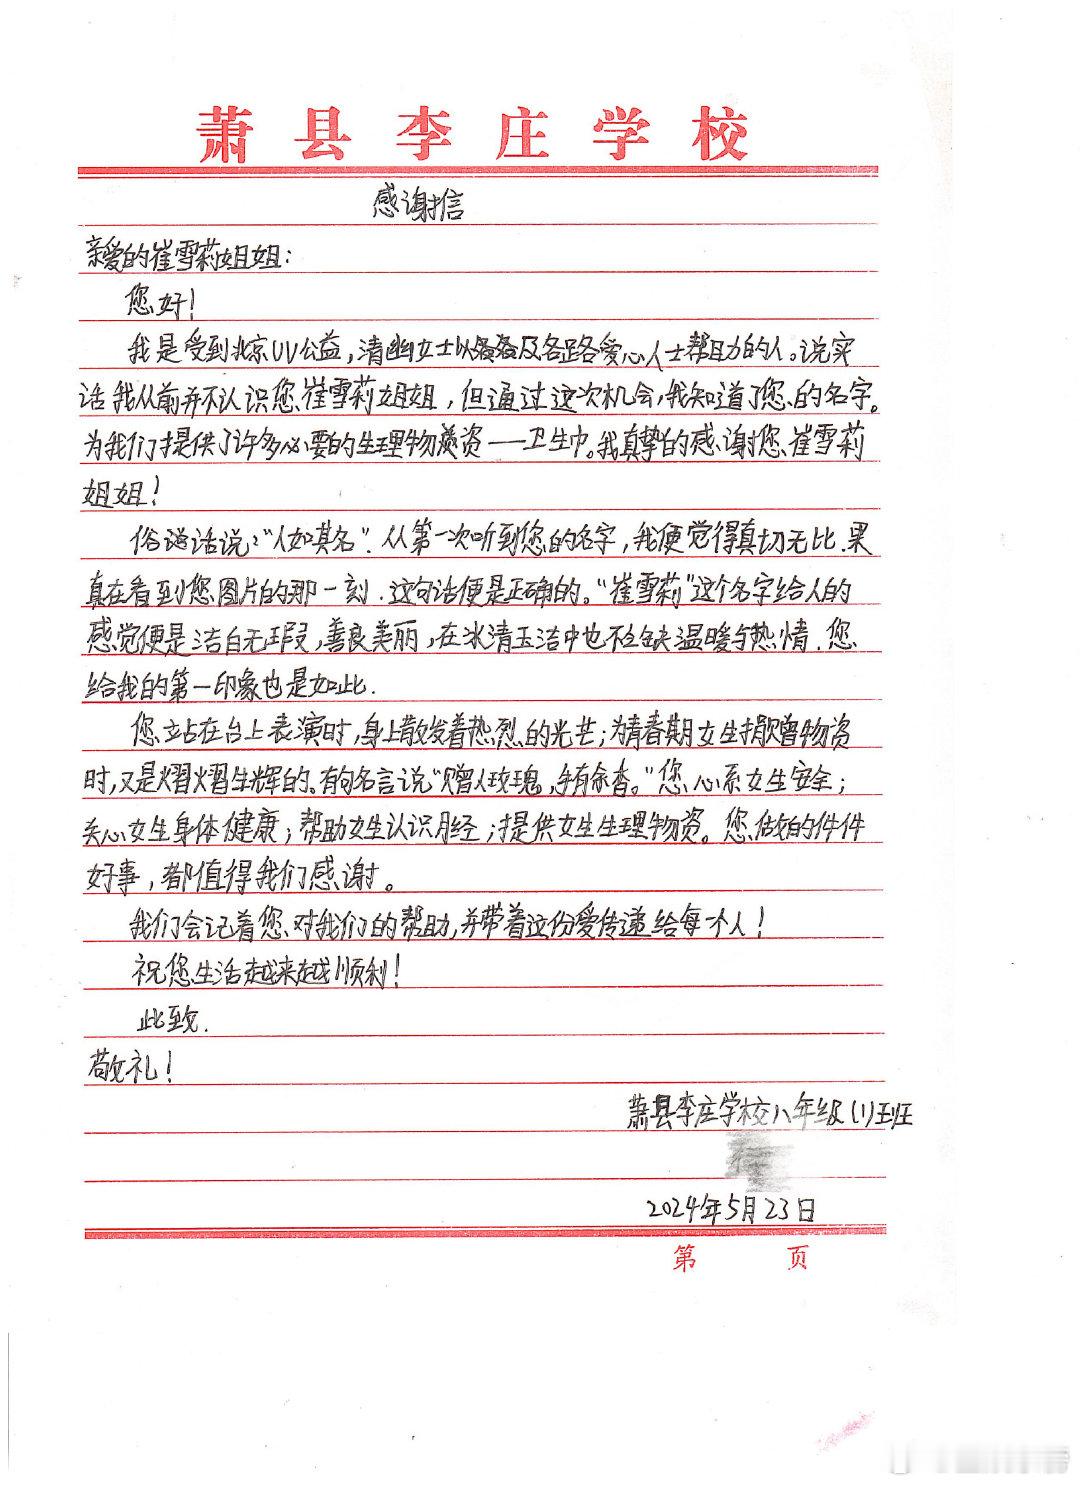 萧县李庄学校
感谢信
亲爱的崔雪莉姐姐：
您好！
我是受到北京UU公益，清幽女士以及各路爱心人士帮助的人。说实
话我从前并不认识您崔雪莉姐姐，但通过这次机会，我知道了您的名字。
为我们提供了许多必要的生理物资——卫生巾。我真挚的感谢您崔雪莉
姐姐！
俗话说："人如其名".从第一次听到您的名字，我便觉得真切无比.果
真在看到您图片的那一刻.这句话便是正确的。"崔雪莉"这个名字给人的
感觉便是洁白无瑕，善良美丽，在冰清玉洁中也不缺温暖与热情.您
给我的第一印象也是如此.
您站在台上表演时，身上散发着热烈的光芒；为青春期女生捐赠物资
时，又是熠熠生辉的。有句名言说"赠人玫瑰，手有余香。"您心系女生安全；
关心女生身体健康；帮助女生认识月经；提供女生生理物资。您做的件件
好事，都值得我们感谢。
我们会记着您对我们的帮助，并带着这份爱传递给每个人！
祝您生活越来越顺利！
此致.
敬礼！
萧县李庄学校八年级(1)班
2024年5月23日
第 页